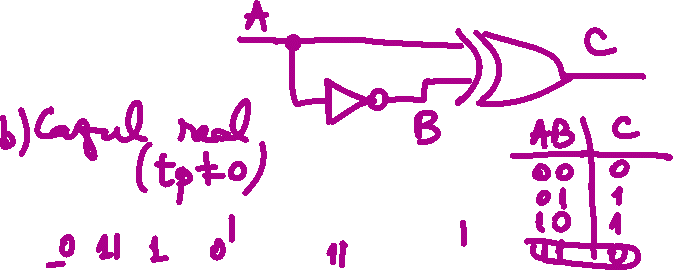 A
C
B
b) Cazul real
(tp≠0)
AB C
00 0
01 1
10 1
11 0
0 1 1 0